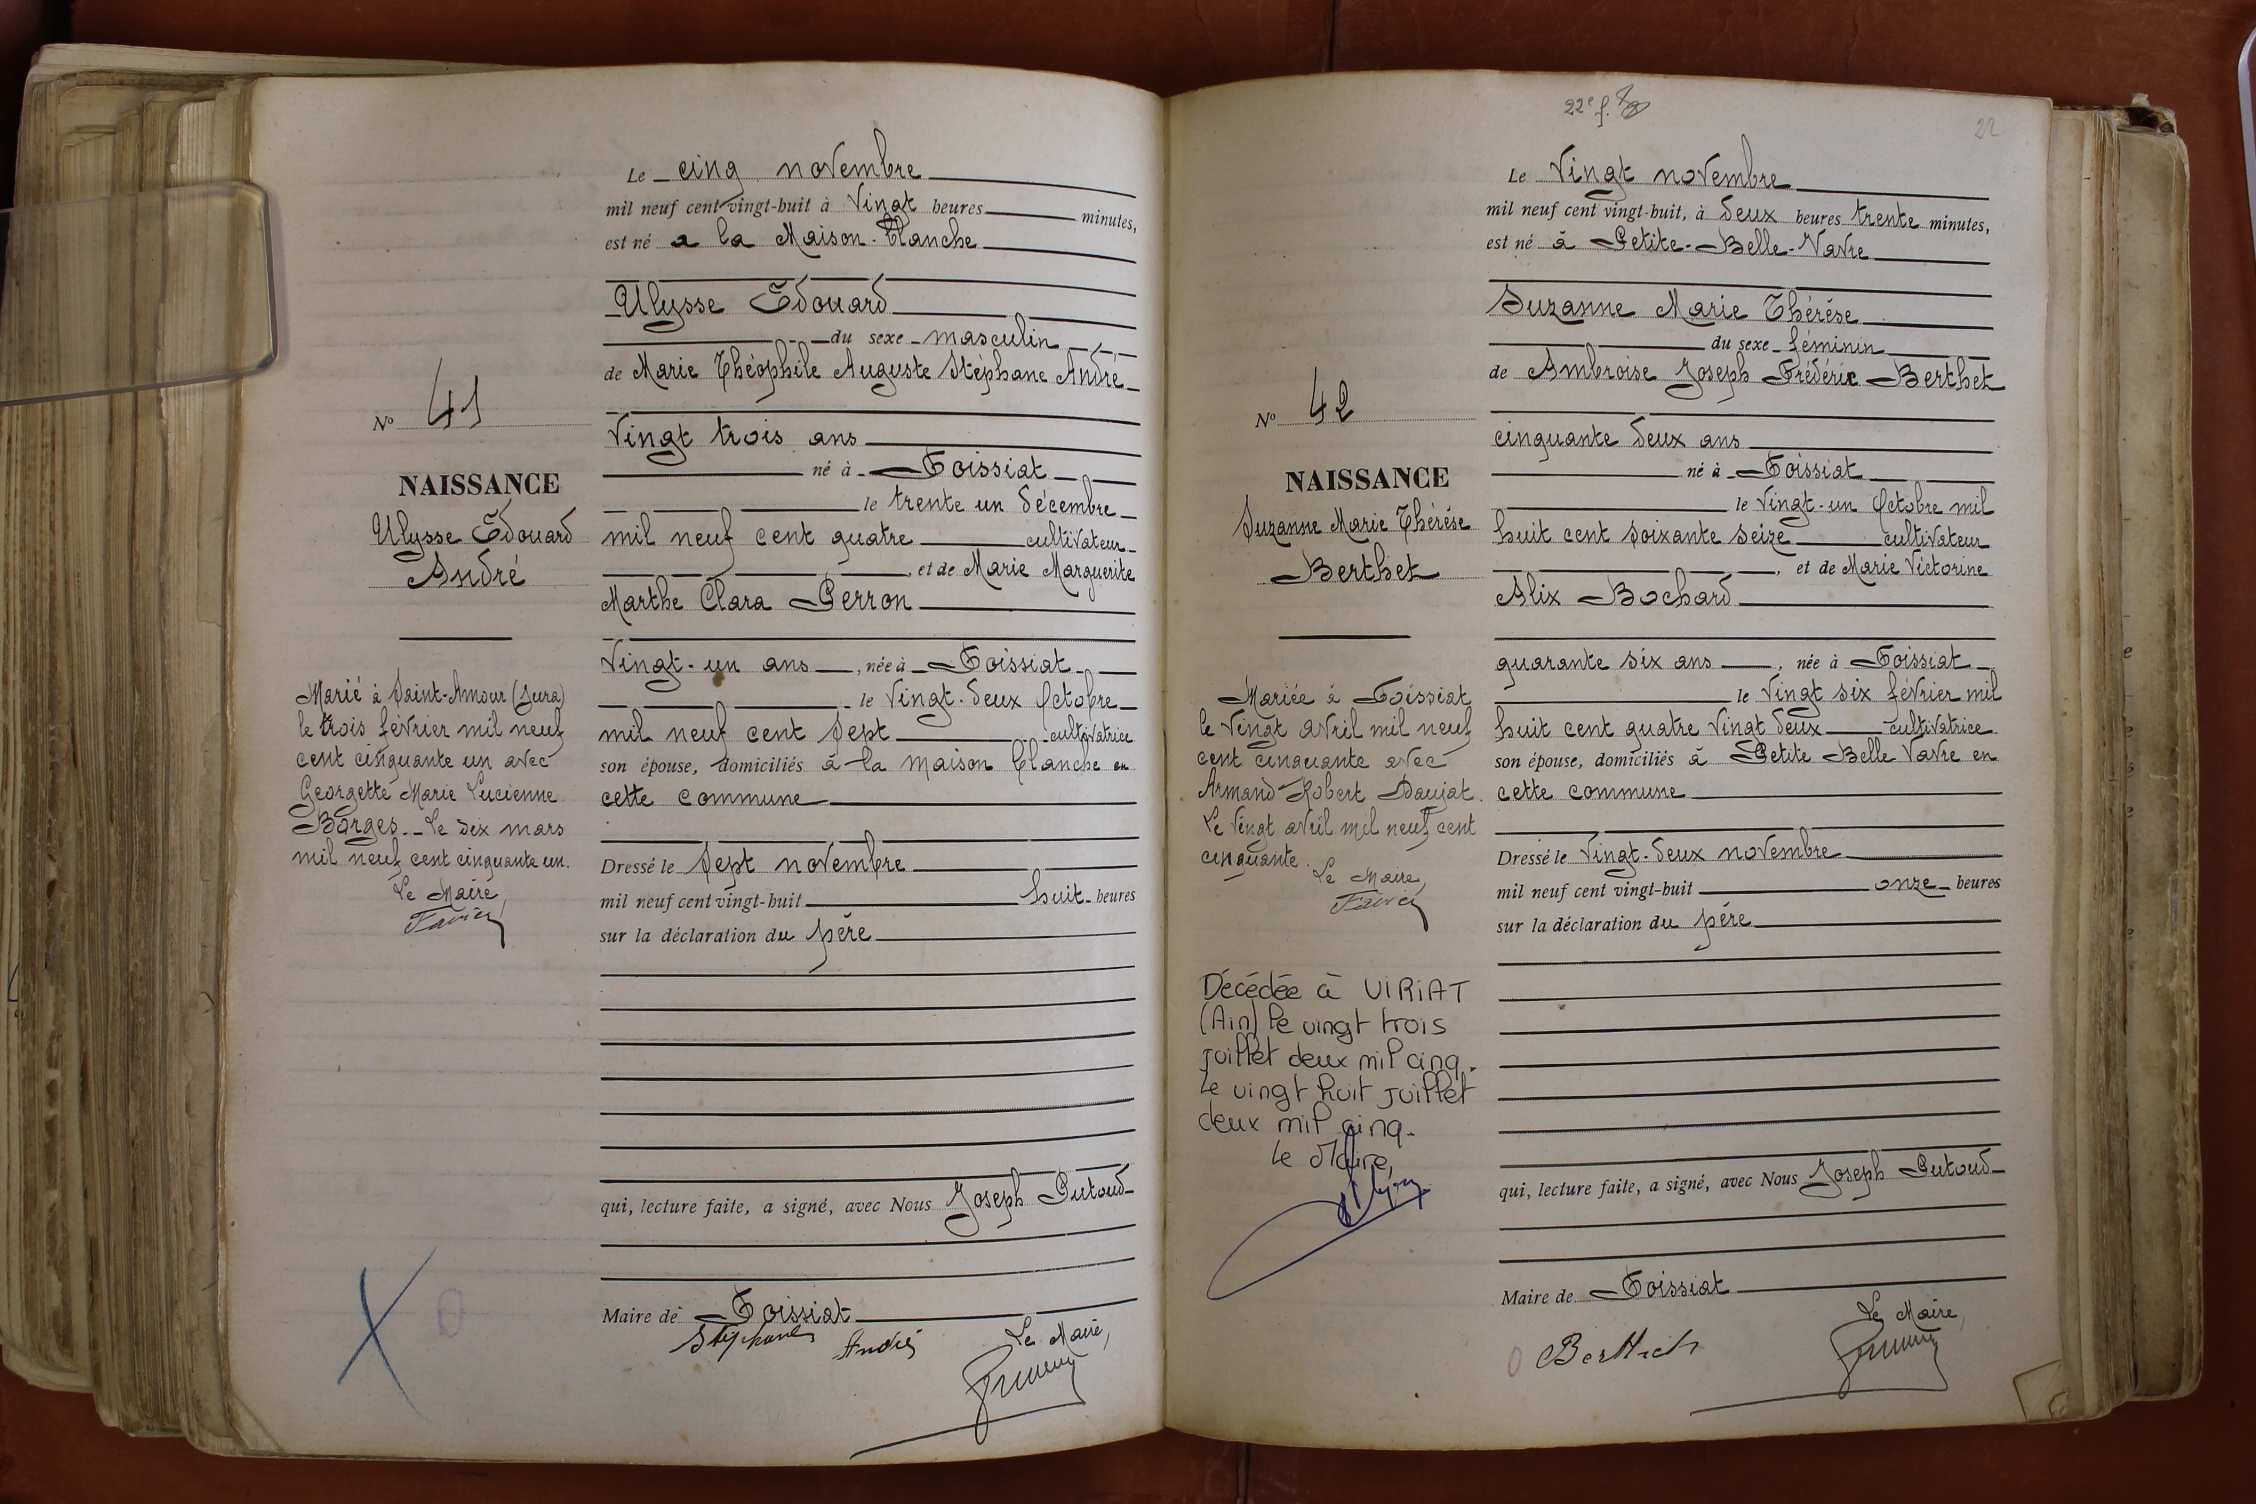 Le cinq novembre
mil neuf cent vingt-huit à Vingt heures minutes,
est né a la Maison-Blanche
Ulysse Edouard
du sexe masculin
de Marie Théophile Auguste Stéphane André
Vingt trois ans
né à Foissiat
le trente un décembre
mil neuf cent quatre cultivateur
, et de Marie Marguerite
Marthe Clara Perron
Vingt-un ans, née à Foissiat
le Vingt-deux Octobre
mil neuf cent sept cultivatrice
son épouse, domiciliés à la Maison Blanche en
cette commune
Dressé le Sept novembre
mil neuf cent vingt-huit huit heures
sur la déclaration du père
qui, lecture faite, a signé, avec Nous Joseph Putoud
Maire de Foissiat
Stéphane André
Le Maire,
No 41
NAISSANCE
Ulysse Edouard
André
Marié à Saint-Amour (Jura)
le trois février mil neuf
cent cinquante un avec
Georgette Marie Lucienne
Borges. Le dix mars
mil neuf cent cinquante un.
Le Maire,
Favier
22e f.
22
Le Vingt novembre
mil neuf cent vingt-huit, à deux heures trente minutes,
est né à Petite-Belle-Vavre
Suzanne Marie Thérèse
du sexe féminin
de Ambroise Joseph Frédéric Berthet
cinquante deux ans
né à Foissiat
le Vingt-un Octobre mil
huit cent soixante seize cultivateur
, et de Marie Victorine
Alix Bochard
quarante six ans, née à Foissiat
le Vingt six février mil
huit cent quatre Vingt deux cultivatrice
son épouse, domiciliés à Petite Belle Vavre en
cette commune
Dressé le Vingt-deux novembre
mil neuf cent vingt-huit onze heures
sur la déclaration du père
qui, lecture faite, a signé, avec Nous Joseph Putoud
Maire de Foissiat
Le Maire,
Berthet
No 42
NAISSANCE
Suzanne Marie Thérèse
Berthet
Mariée à Foissiat
le Vingt avril mil neuf
cent cinquante avec
Armand Robert Daujat.
Le Vingt avril mil neuf cent
cinquante.
Le Maire,
Favier
Décédée à VIRIAT
(Ain) le vingt trois
juillet deux mil cinq.
Le vingt huit juillet
deux mil cinq.
Le Maire,